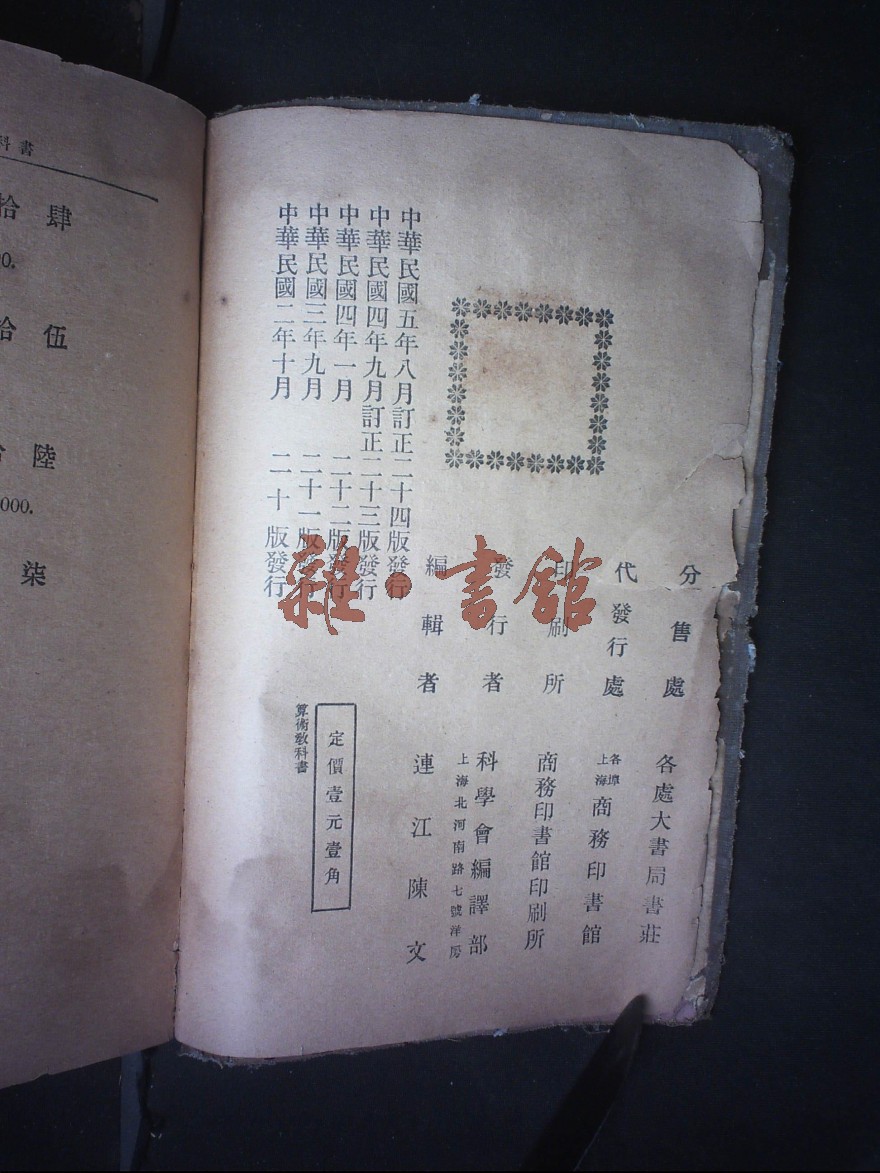 科書
拾肆
0.
拾伍
陸
000.
柒
中華民國二年十月 二十版發行
中華民國三年九月 二十一版發行
中華民國四年一月 二十二版發行
中華民國四年九月訂正二十三版發行
中華民國五年八月訂正二十四版發行
算術教科書
定價壹元壹角
編輯者 連江陳文
發行者 科學會編譯部
上海北河南路七號洋房
印刷所 商務印書館印刷所
代發行處 上海各埠商務印書館
分售處 各處大書局書莊
雜·書館